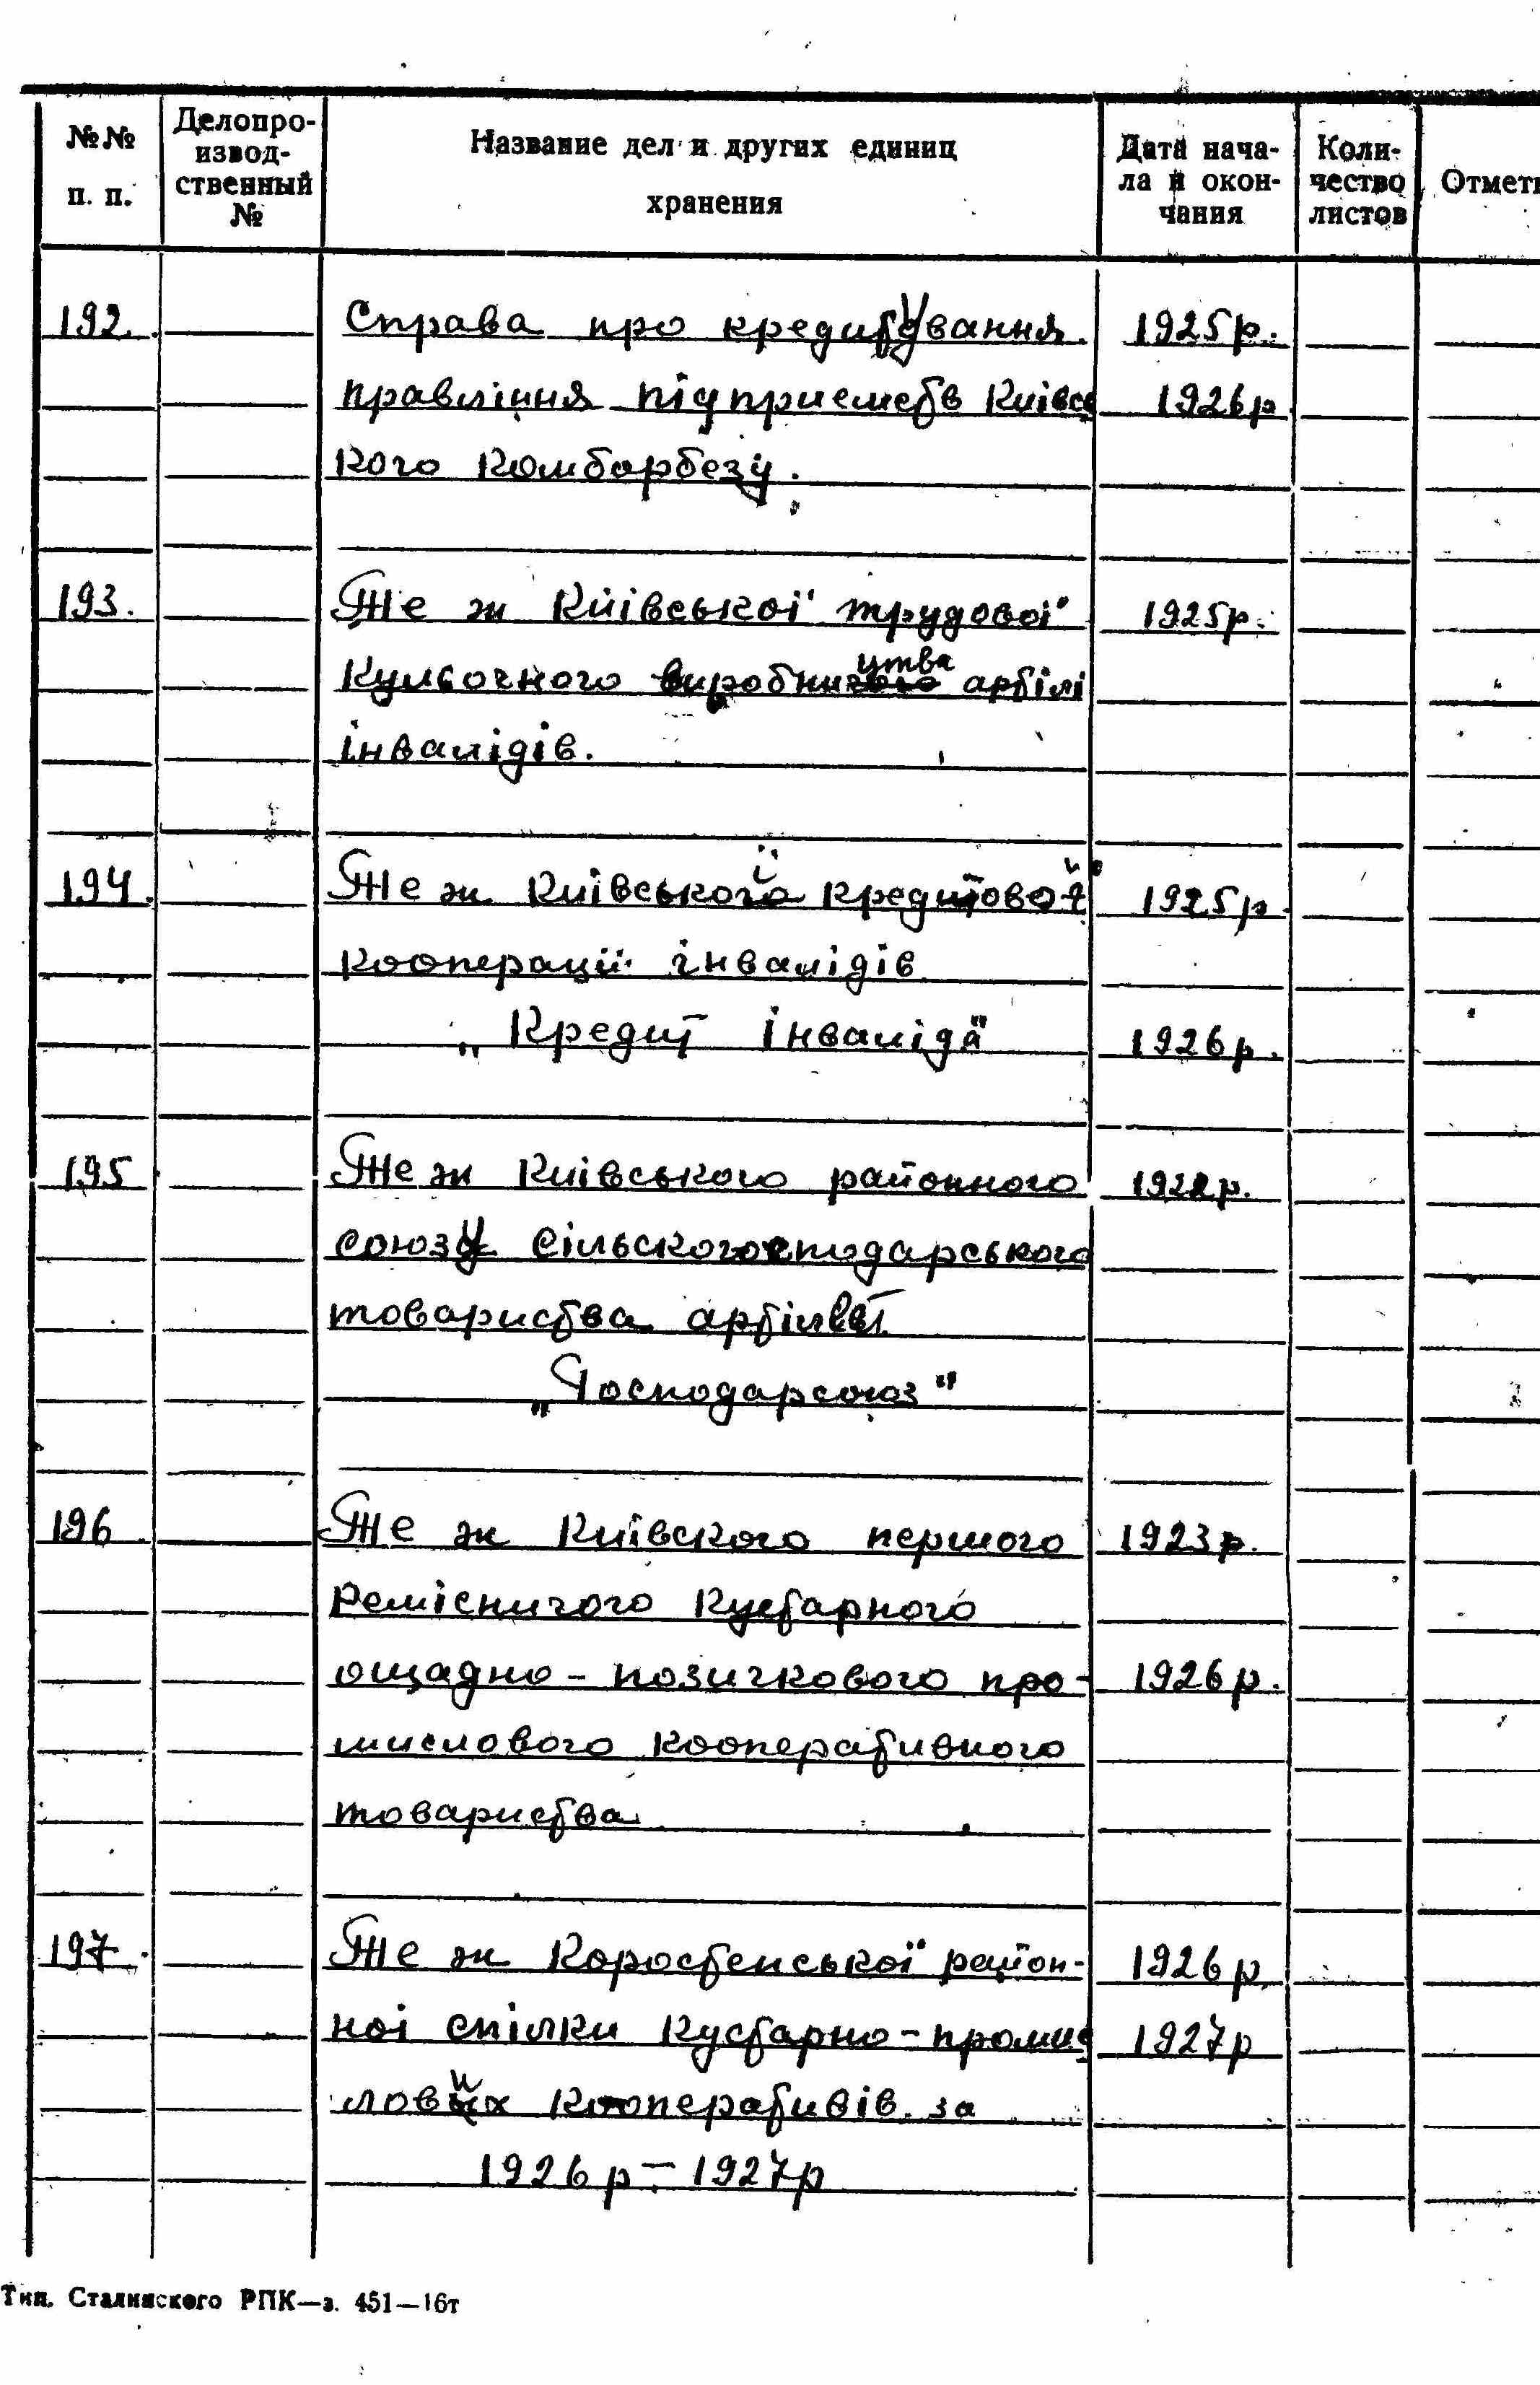 №№ п. п.
Делопроизводственный №
Название дел и других единиц хранения
Дата начала и окончания
Количество листов
Отмет
192. Справа про кредитування 1925р.
правління підприємств Київсь 1926р
кого Комборбезу.
193. Те ж Київської трудової 1925р.
Кульочного виробництва артілі
інвалідів.
194. Те ж Київської кредитової 1925р.
кооперації інвалідів
„Кредит інваліда" 1926р.
195 Те ж Київського районного 1922р.
союзу сільскогосподарського
товариства артілей
„Господарсоюз"
196 Те ж Київского першого 1923р.
Ремісничого Кустарного
ощадно-позичкового про- 1926р.
мислового кооперативного
товариства
197. Те ж Коростенської район- 1926р.
ноі спілки Кустарно-промис 1927р
лових Кооперативів за
1926р - 1927р
Тип. Сталинского РПК—з. 451—16т